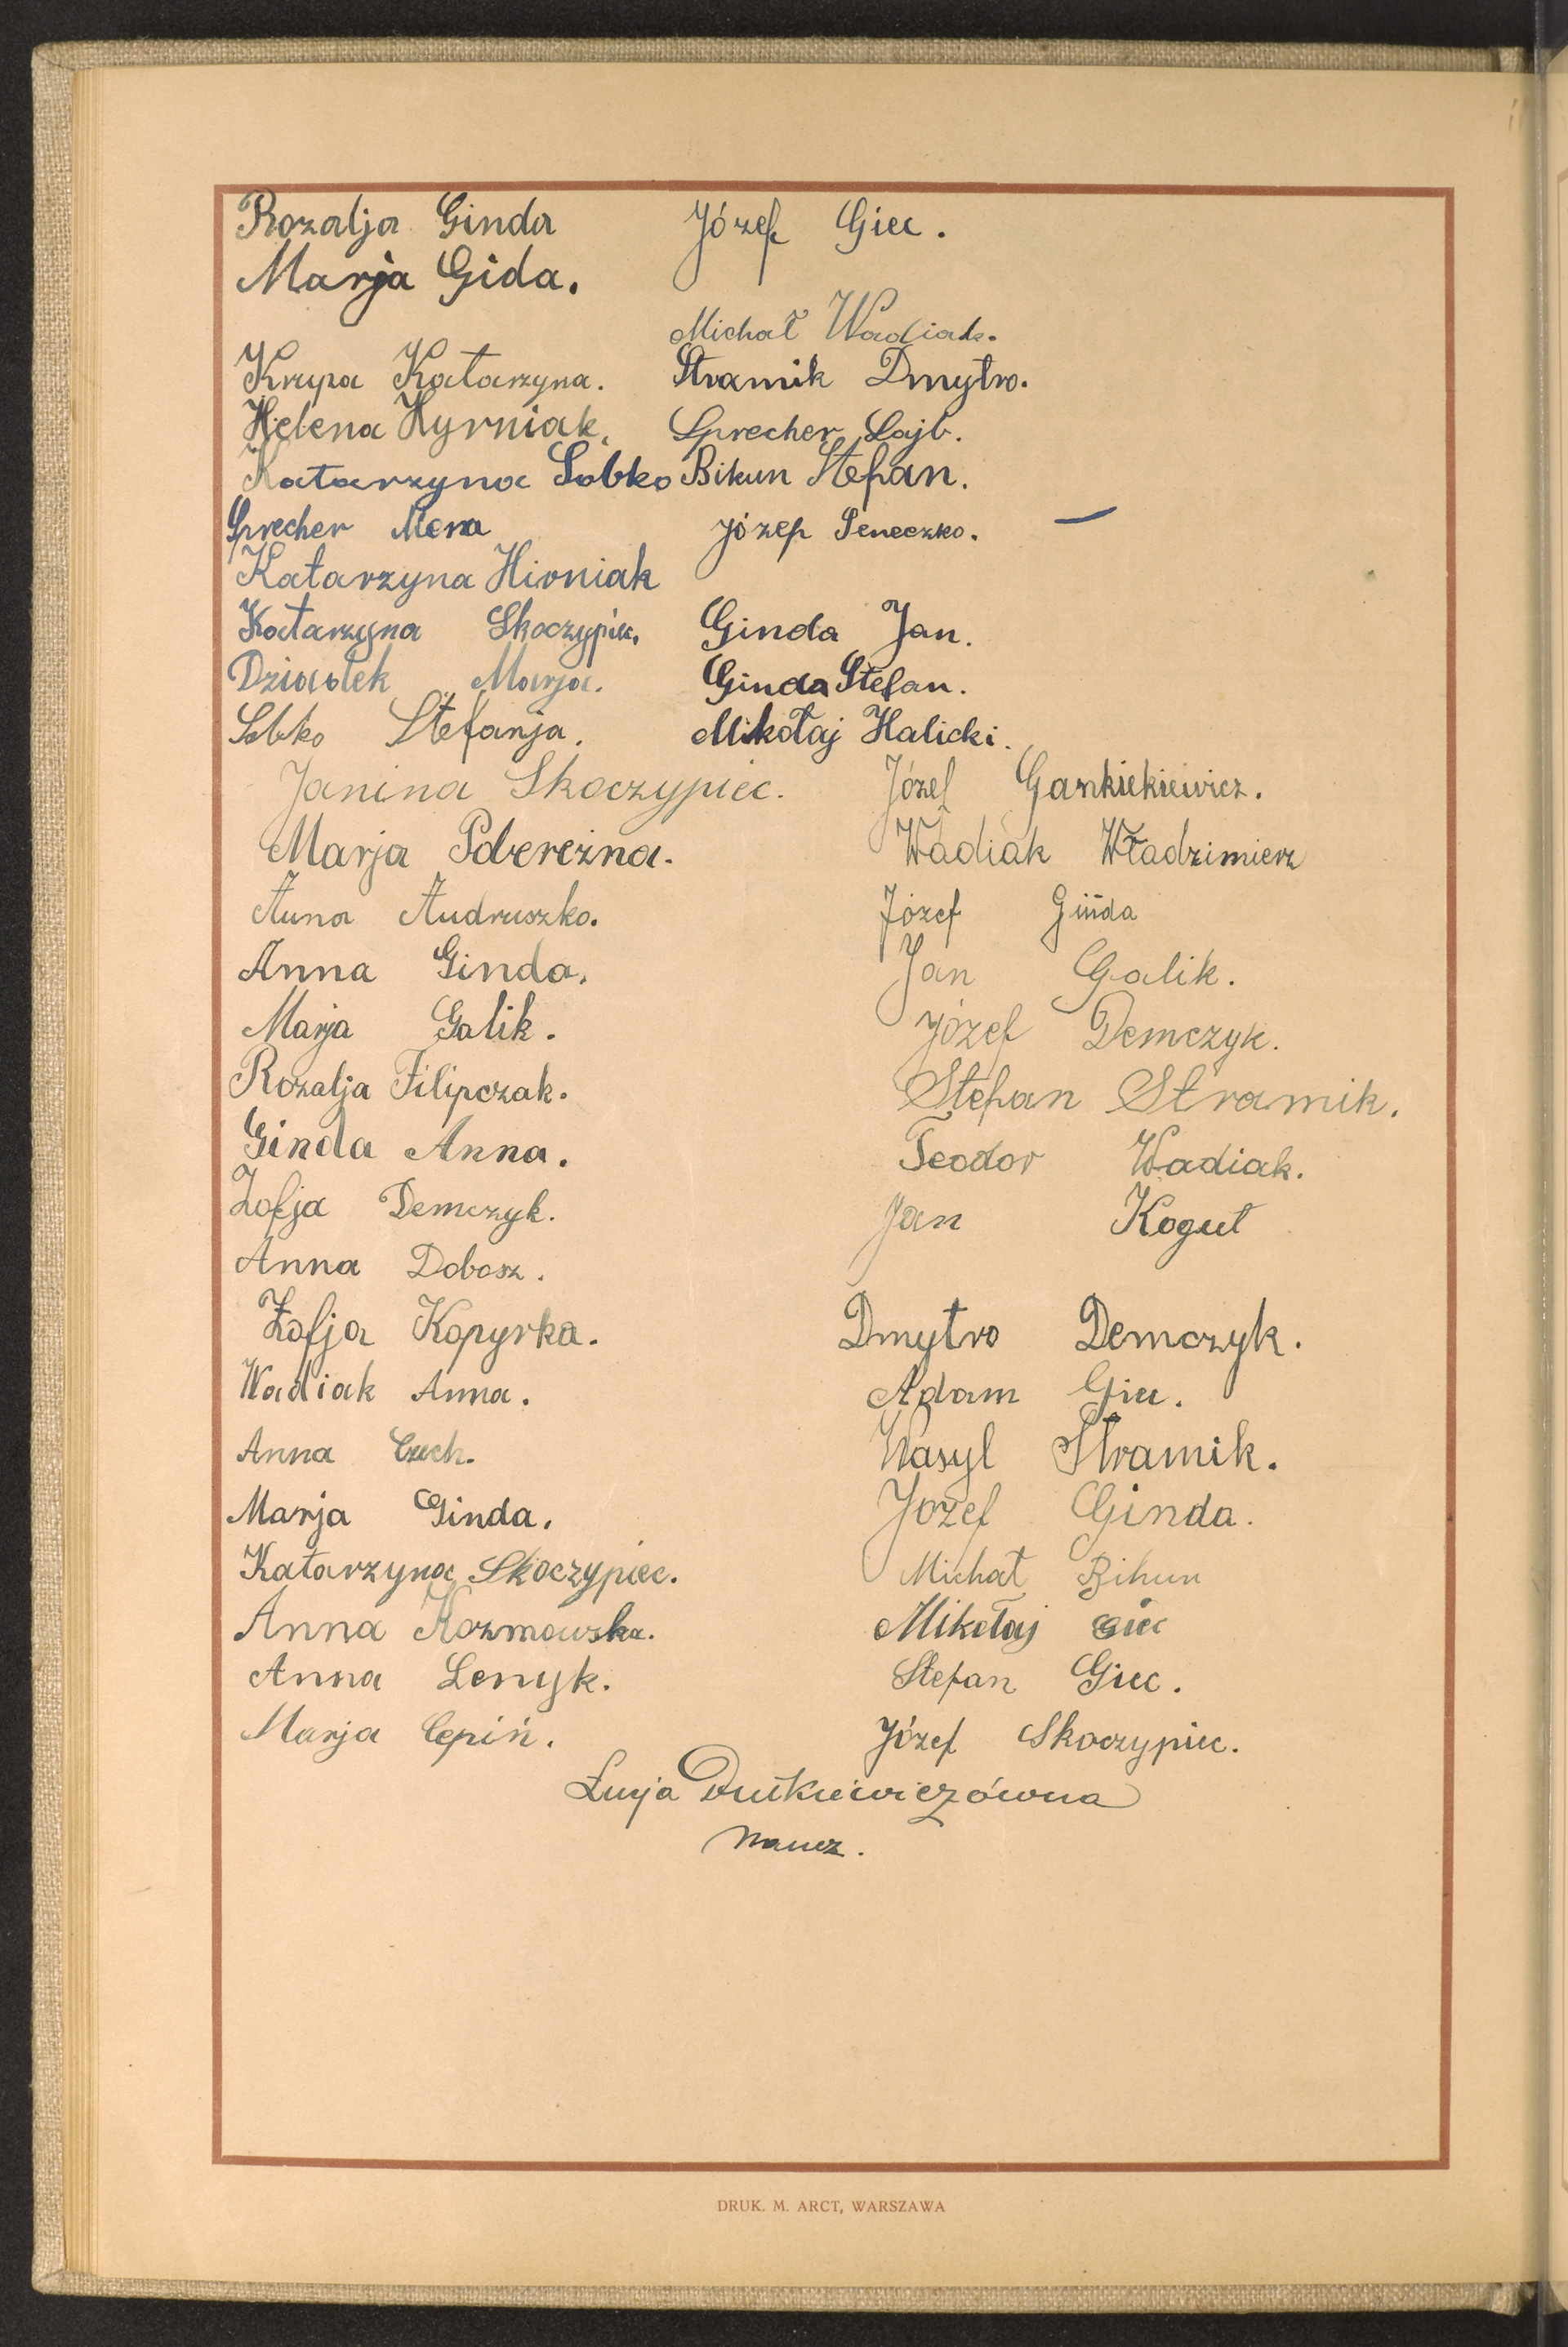 Rozalja Ginda Józef Giec.
Marja Gida.
Michał Wadiak.
Krupa Katarzyna. Stramik Dmytro.
Helena Hyrniak, Sprecher Lajb.
Katarzyna Sobko Bihun Stefan.
Sprecher Mena Józep Seneczko.
Katarzyna Hirniak
Katarzyna Skoczypiec, Ginda Jan.
Dziadek Marja. Ginda Stefan.
Sobko Stefanja. Mikołaj Halicki.
Janina Skoczypiec. Józef Gankiekiewicz.
Marja Pobereżna. Wadiak Władzimierz
Anna Andruszko. Józef Ginda
Anna Ginda. Jan Galik.
Marja Galik. Józef Demczyk.
Rozalja Filipczak. Stefan Stramik.
Ginda Anna. Teodor Wadiak.
Zofja Demczyk. Jan Kogut
Anna Dobosz.
Zofja Kopyrka. Dmytro Demczyk.
Wadiak Anna. Adam Giec.
Anna Cuch. Wasyl Stramik.
Marja Ginda. Józef Ginda.
Katarzyna Skoczypiec. Michał Bihun
Anna Kozmowska. Mikołaj Giec
Anna Lenyk. Stefan Giec.
Marja Cepiń. Józef Skoczypiec.
Łucja Dutkiewiczówna
naucz.
DRUK. M. ARCT, WARSZAWA